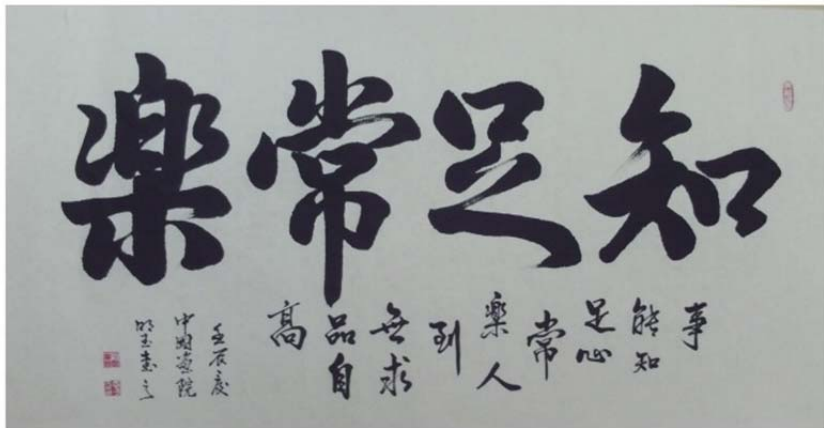 知足常楽
事
能知
足心
常
樂人
到
無求
品自
高
壬辰夏
中國畫院
明玉书之